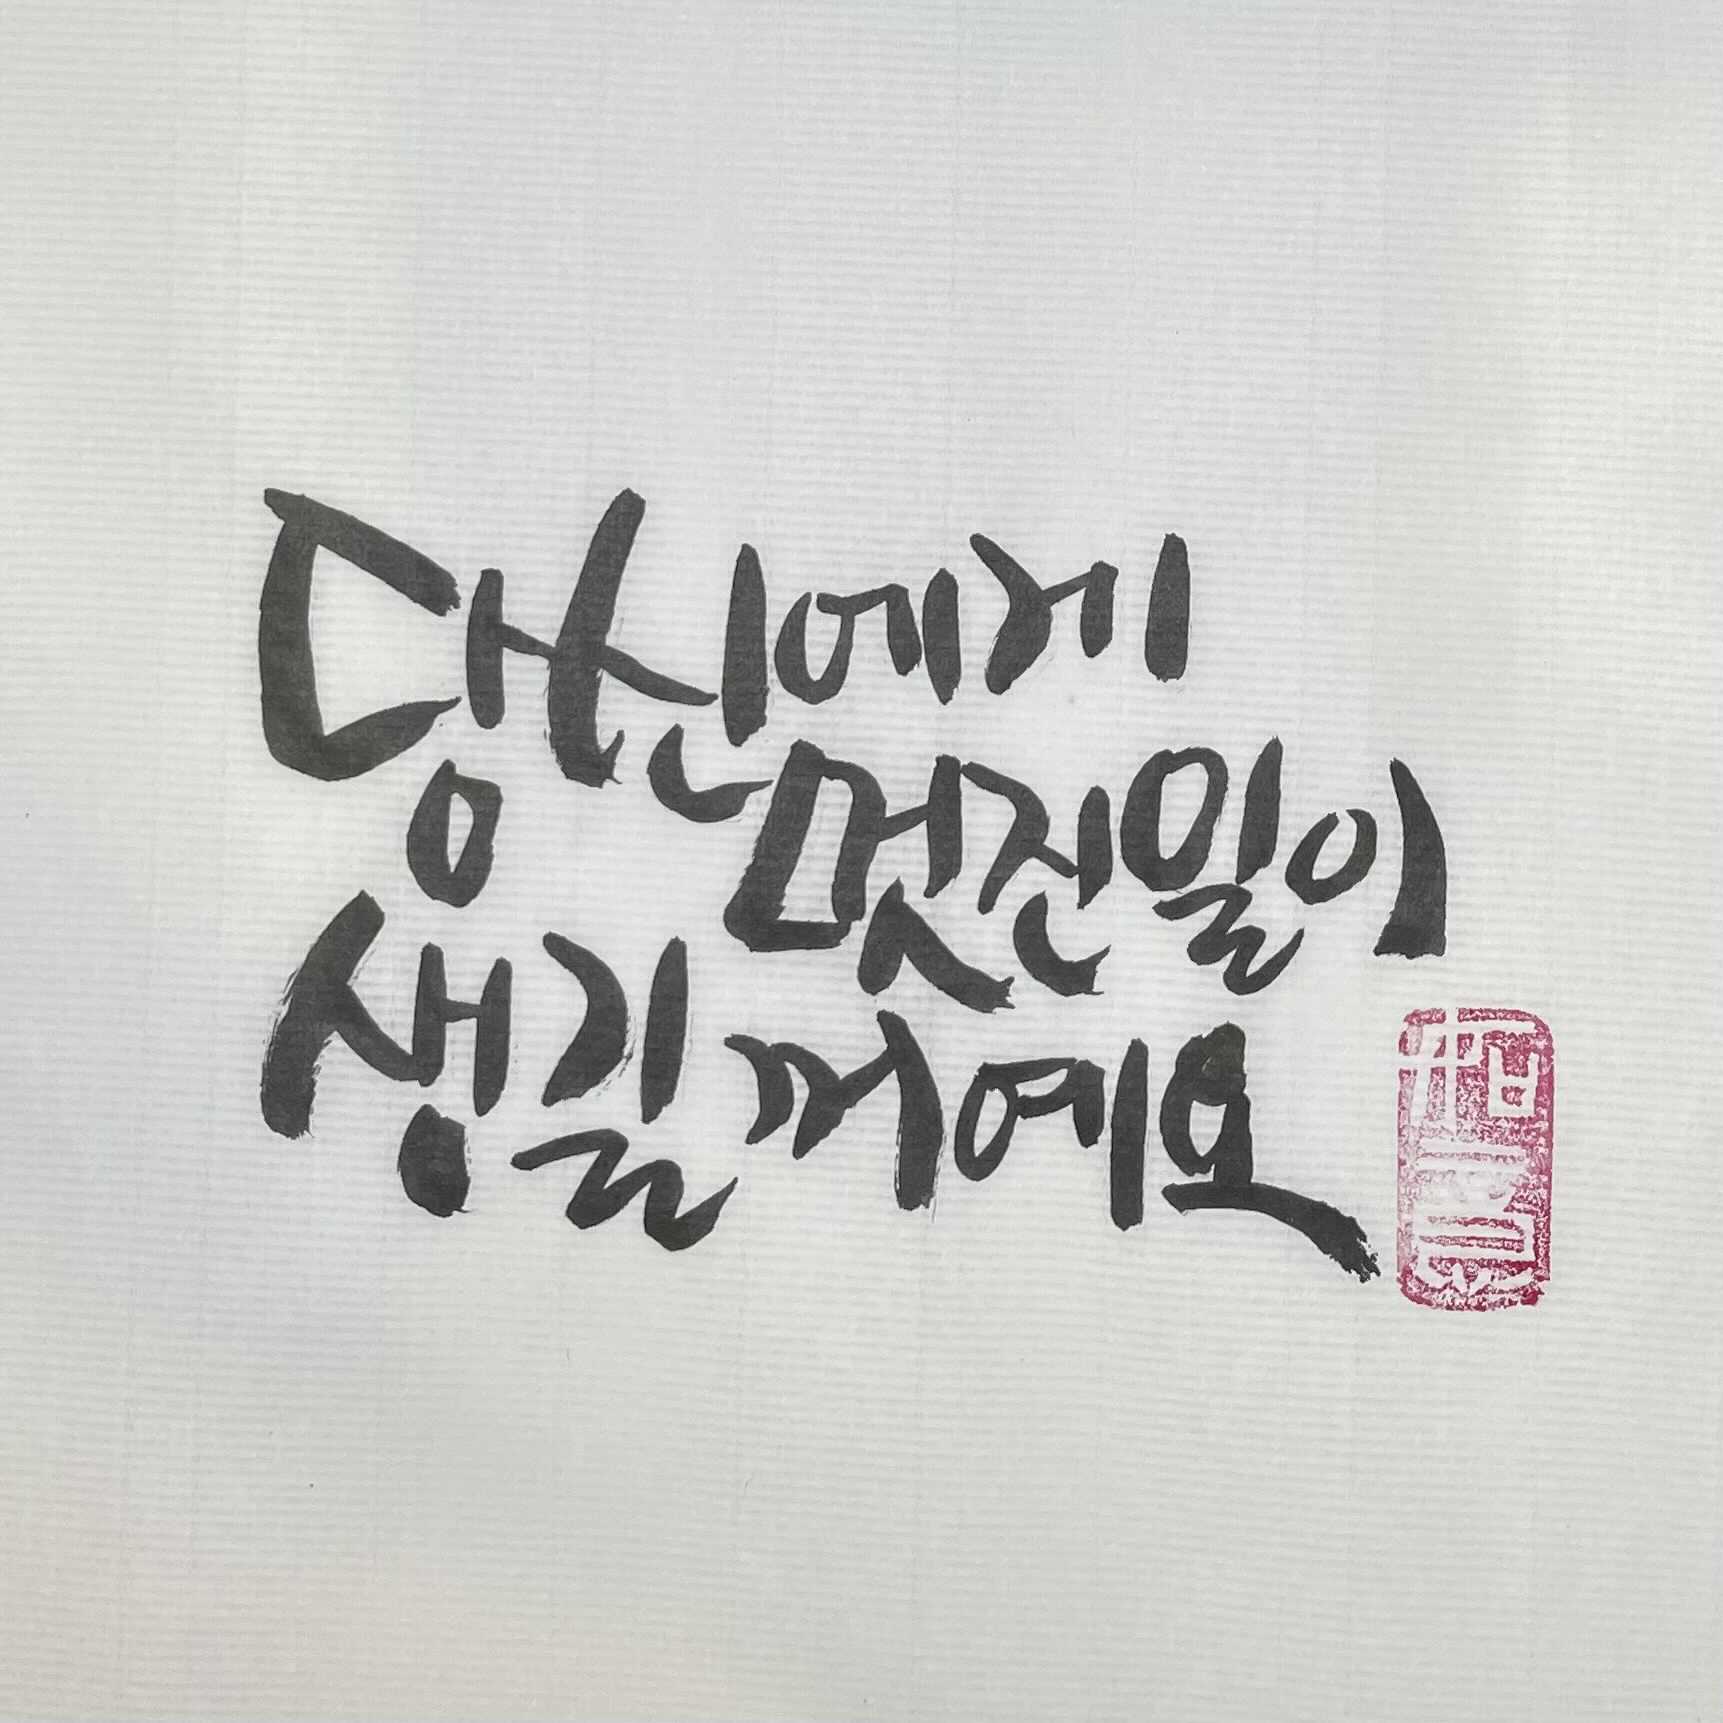 당신에게
멋진일이
생길꺼예요